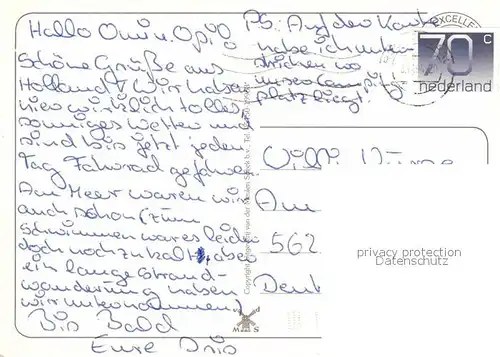 Hallo Omi u. Opi!
Schöne Grüße aus
Holland! Wir haben
hier wirklich tolles,
sonniges Wetter und
sind bis jetzt jeden
Tag Fahrrad gefahren.
Am Meer waren wir
auch schon (zum
Schwimmen war es leider
doch noch zu kalt, aber
ein lange Strand-
wanderung haben
wir unternommen)
Bis Bald
Eure
PS: Auf der Karte
habe ich unter-
strichen wo
unser Camping-
platz liegt!
EXCELLE
70 c
nederland
Willi
Am
562
privacy protection
Datenschutz